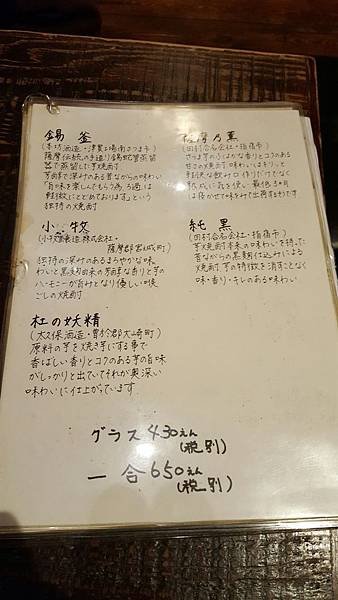 錫釜
(本坊酒造・津貫工場南さつま市)
薩摩伝統の手造り錫蛇管蒸留
器で蒸留した芋焼酎
芳醇で深みのある昔ながらの味わい
「旨味を楽しんでもらう為ろ過は
軽微にとどめております」という
独特の焼酎
小牧
(小牧醸造株式会社・
薩摩郡さつま町)
独特の深みのあるまろやかな味
わいと黒麹由来の芳醇な香りと芋の
ハーモニーが旨みとなり優しい口後
ごしの焼酎
杜の妖精
(太久保酒造・曽於郡大崎町)
原料の芋を焼き芋にする事で
香ばしい香りとコクのある芋の旨味
がしっかりと出ていてそれが奥深い
味わいに仕上がっています
薩摩乃薫
(田村合名会社・指宿市)
さつま芋のほのかな香りとコクのある
甘さの焼酎 味わいはキリッと
軽快な飲み口 作りだけでなく
熟成に気を使い 最低3ヶ月
は寝かせて味をみて出荷するわけです
純黒
(田村合名会社・指宿市)
芋焼酎本来の味わいを持った
昔ながらの黒麹仕込みによる
焼酎 芋の特徴を消すことなく
味・香り・キレのある味わい
グラス430えん
(税別)
一合650えん
(税別)